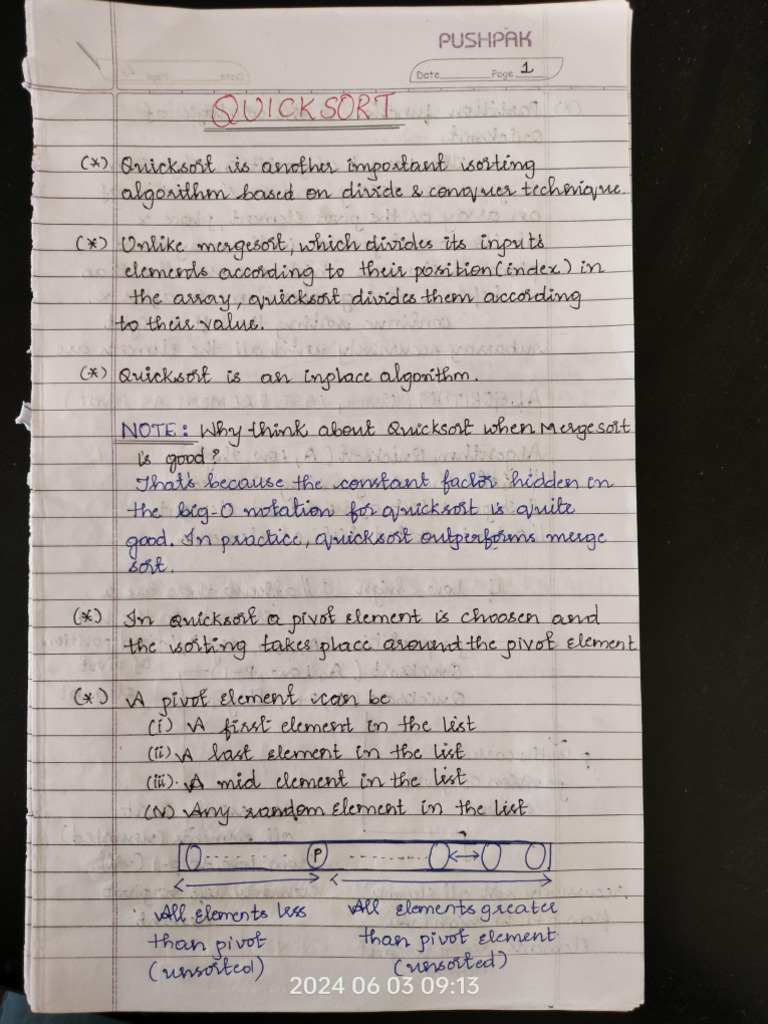 PUSHPAK
Date Page 1
QUICKSORT
(*) Quicksort is another important sorting
algorithm based on divide & conquer technique.
(*) Unlike mergesort, which divides its inputs
elements according to their position (index) in
the array, quicksort divides them according
to their value.
(*) Quicksort is an inplace algorithm.
NOTE: Why think about Quicksort when Mergesort
is good?
Thats because the constant factor hidden in
the big-O notation for quicksort is quite
good. In practice, quicksort outperforms merge
sort.
(*) In Quicksort a pivot element is choosen and
the sorting takes place around the pivot element
(*) A pivot element can be
(i) A first element in the list
(ii) A last element in the list
(iii). A mid element in the list
(iv) Any random element in the list
P
All elements less All elements greater
than pivot than pivot element
(unsorted) (unsorted)
2024 06 03 09:13